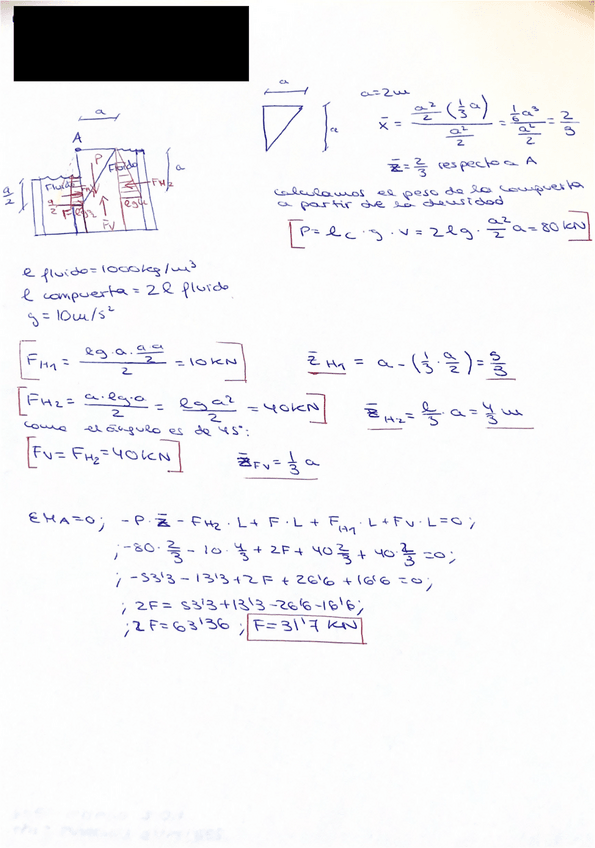 a
A
P
Fluido
a
a/2
Fluido
FH2
a/2
FV
a
a
a=2m
x̄ = (a²/2 (1/3 a)) / (a²/2) = (1/6 a³) / (a²/2) = 2/3
z̄ = 2/3 respecto a A
Calculamos el peso de la compuerta
a partir de la densidad
[P = ρc · g · V = 2ρg · a²/2 a = 80 KN]
ρ fluido = 1000 kg/m³
ρ compuerta = 2 ρ fluido
g = 10 m/s²
[FH1 = = 10 KN
z̄H1 = a - (1/3 · a/2) = 5/3
[FH2 = a·ρg·a / 2 = ρga² / 2 = 40 KN]
z̄H2 = /3 · a = 4/3 m
como el ángulo es de 45º:
[FV = FH2 = 40 KN]
z̄FV = 1/3 a
ΣMA=0; -P·z̄ - FH2·L + F·L + FH1·L + FV·L = 0;
;-80·2/3 - 10·4/3 + 2F + 40 2/3 + 40·2/3 = 0;
; -53'3 - 13'3 + 2F + 26'6 + 16'6 = 0;
; 2F = 53'3 + 13'3 - 26'6 - 16'6;
; 2F = 63'36 ; F = 31'7 KN